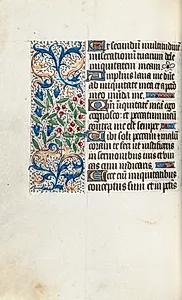 Et secundum multitudinem
miserationum tuarum dele
iniquitatem meam
Amplius lava me
ab iniquitate mea et a pecca
to meo munda me
Quoniam iniquitatem meam ego
cognosco et peccatum meum
contra me est semper
Tibi soli peccavi et malum
coram te feci ut iustificeris
in sermonibus tuis et vin
cas cum iudicaris
Ecce enim iniquitatibus
conceptus sum et in peccatis